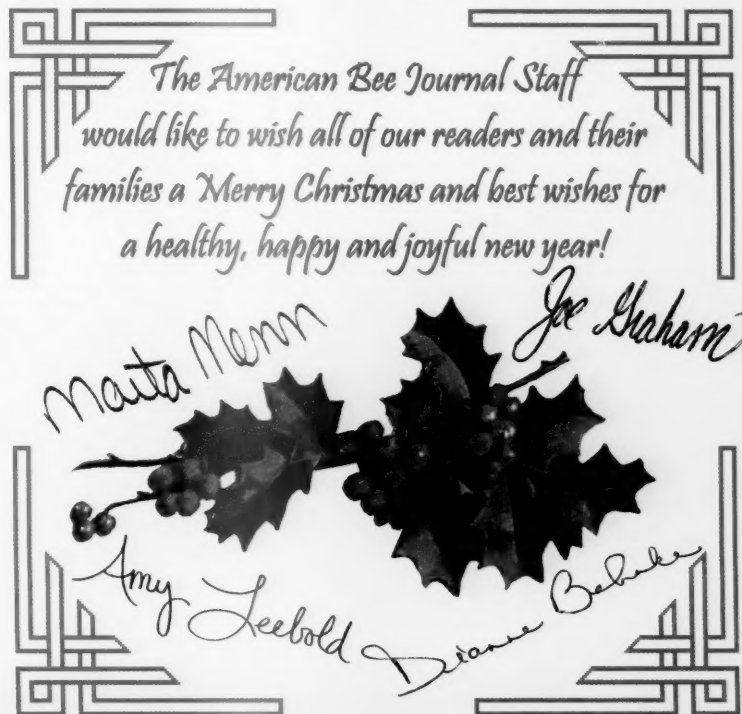 The American Bee Journal Staff
would like to wish all of our readers and their
families a Merry Christmas and best wishes for
a healthy, happy and joyful new year!
Joe Graham
Marta Menn
Amy Leebold
Dianne Behnke